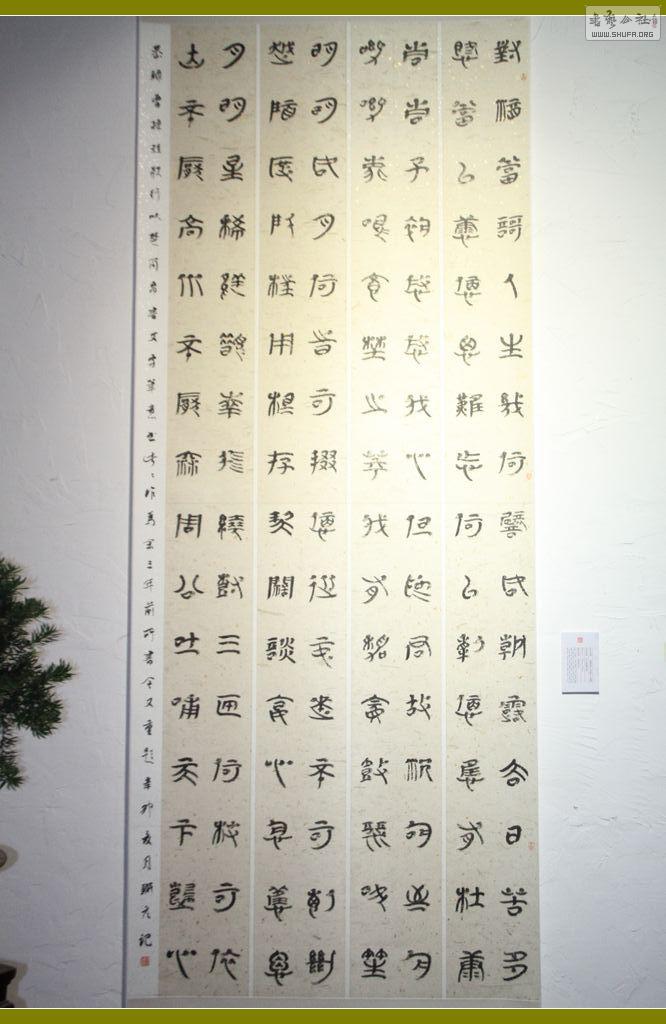 書藝公社
WWW.SHUFA.ORG
對酒當歌人生幾何譬如朝露去日苦多
慨當以慷憂思難忘何以解憂唯有杜康
青青子衿悠悠我心但為君故沉吟至今
呦呦鹿鳴食野之苹我有嘉賓鼓瑟吹笙
明明如月何時可掇憂從中來不可斷絕
越陌度阡枉用相存契闊談讌心念舊恩
月明星稀烏鵲南飛繞樹三匝何枝可依
山不厭高水不厭深周公吐哺天下歸心
曹操短歌行以楚簡帛書文字筆意余三年前所書今又重題辛卯夏月記